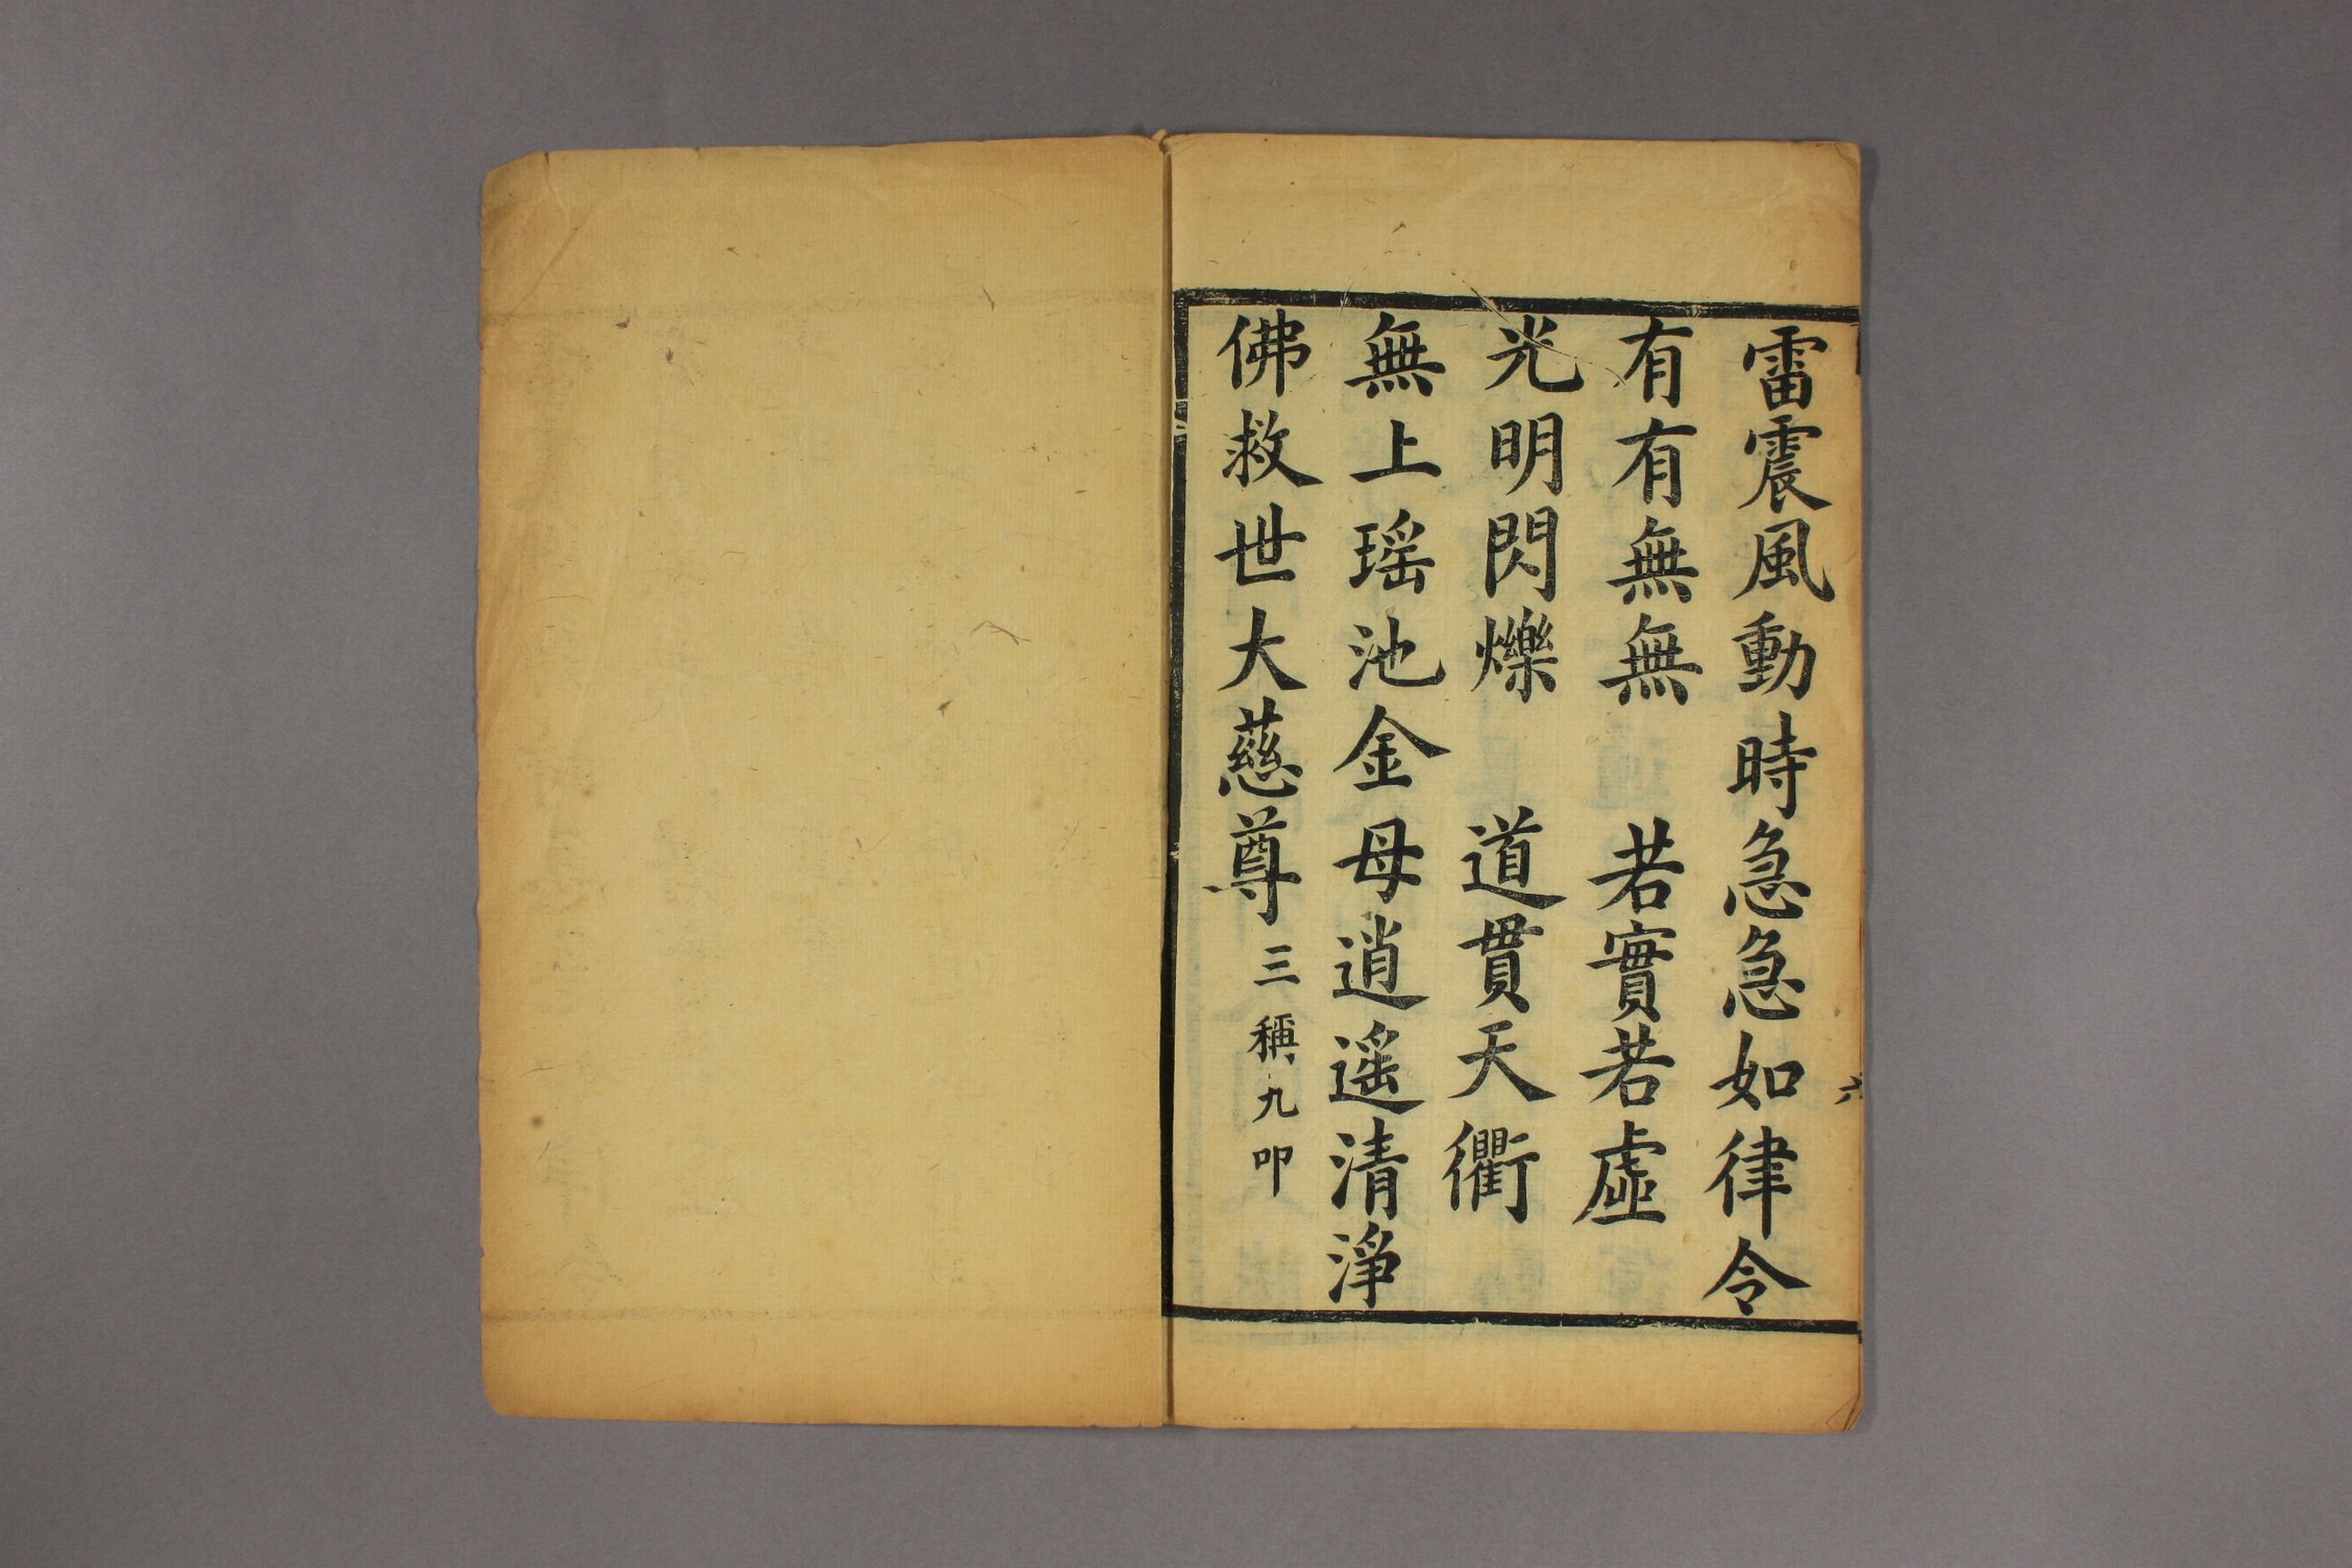 雷震風動時急急如律令
有有無無　若實若虛
光明閃爍　道貫天衢
無上瑶池金母逍遥清淨
佛救世大慈尊三稱九叩
六